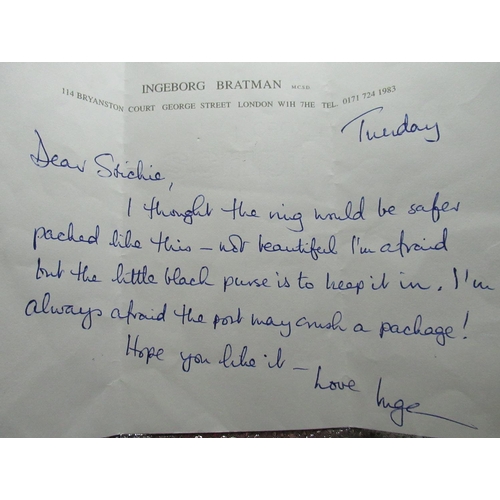 INGEBORG BRATMAN M.C.S.D.
114 BRYANSTON COURT GEORGE STREET LONDON W1H 7HE TEL. 0171 724 1983
Tuesday
Dear Stichie,
I thought the ring would be safer
packed like this – not beautiful I'm afraid
but the little black purse is to keep it in. I'm
always afraid the post may crush a package!
Hope you like it –
Love Inge